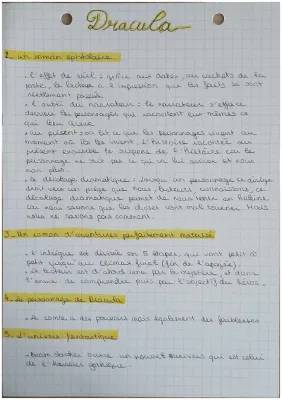 Dracula
2. Un roman épistolaire
• L'effet de réel : grâce aux dates, aux cachets de la
poste, le lecteur a l'impression que les faits se sont
réellement passés.
• L'oubli du narrateur : le narrateur s'efface
derrière les personnages qui racontent eux-mêmes ce
qui leur arrive.
• Au présent on lit ce que les personnages vivent au
moment où ils le vivent. L'histoire racontée au
présent le suspens de l'histoire car le
personnage ne sait pas ce qui va lui arriver et nous
non plus.
• Le décalage dramatique : lorsque un personnage se dirige
droit vers un piège que nous, lecteurs, connaissons, ce
décalage dramatique permet de nous tenir en haleine
car nous savons que les choses vont mal tourner. Mais
nous ne savons pas comment.
3. Un roman d'aventures parfaitement maîtrisé
• L'intrigue est divisée en 5 étapes, qui vont petit à
petit jusqu'au climax final (fin de l'apogée).
• Le lecteur est d'abord par le mystère, et dans
l'envie de comprendre puis par l'objectif du héros.
4. Le personnage de Dracula
• Le comte a des pouvoirs mais également des faiblesses
5. L'univers fantastique
• Bram Stoker ouvre un nouvel univers qui est celui
de l'horreur gothique.